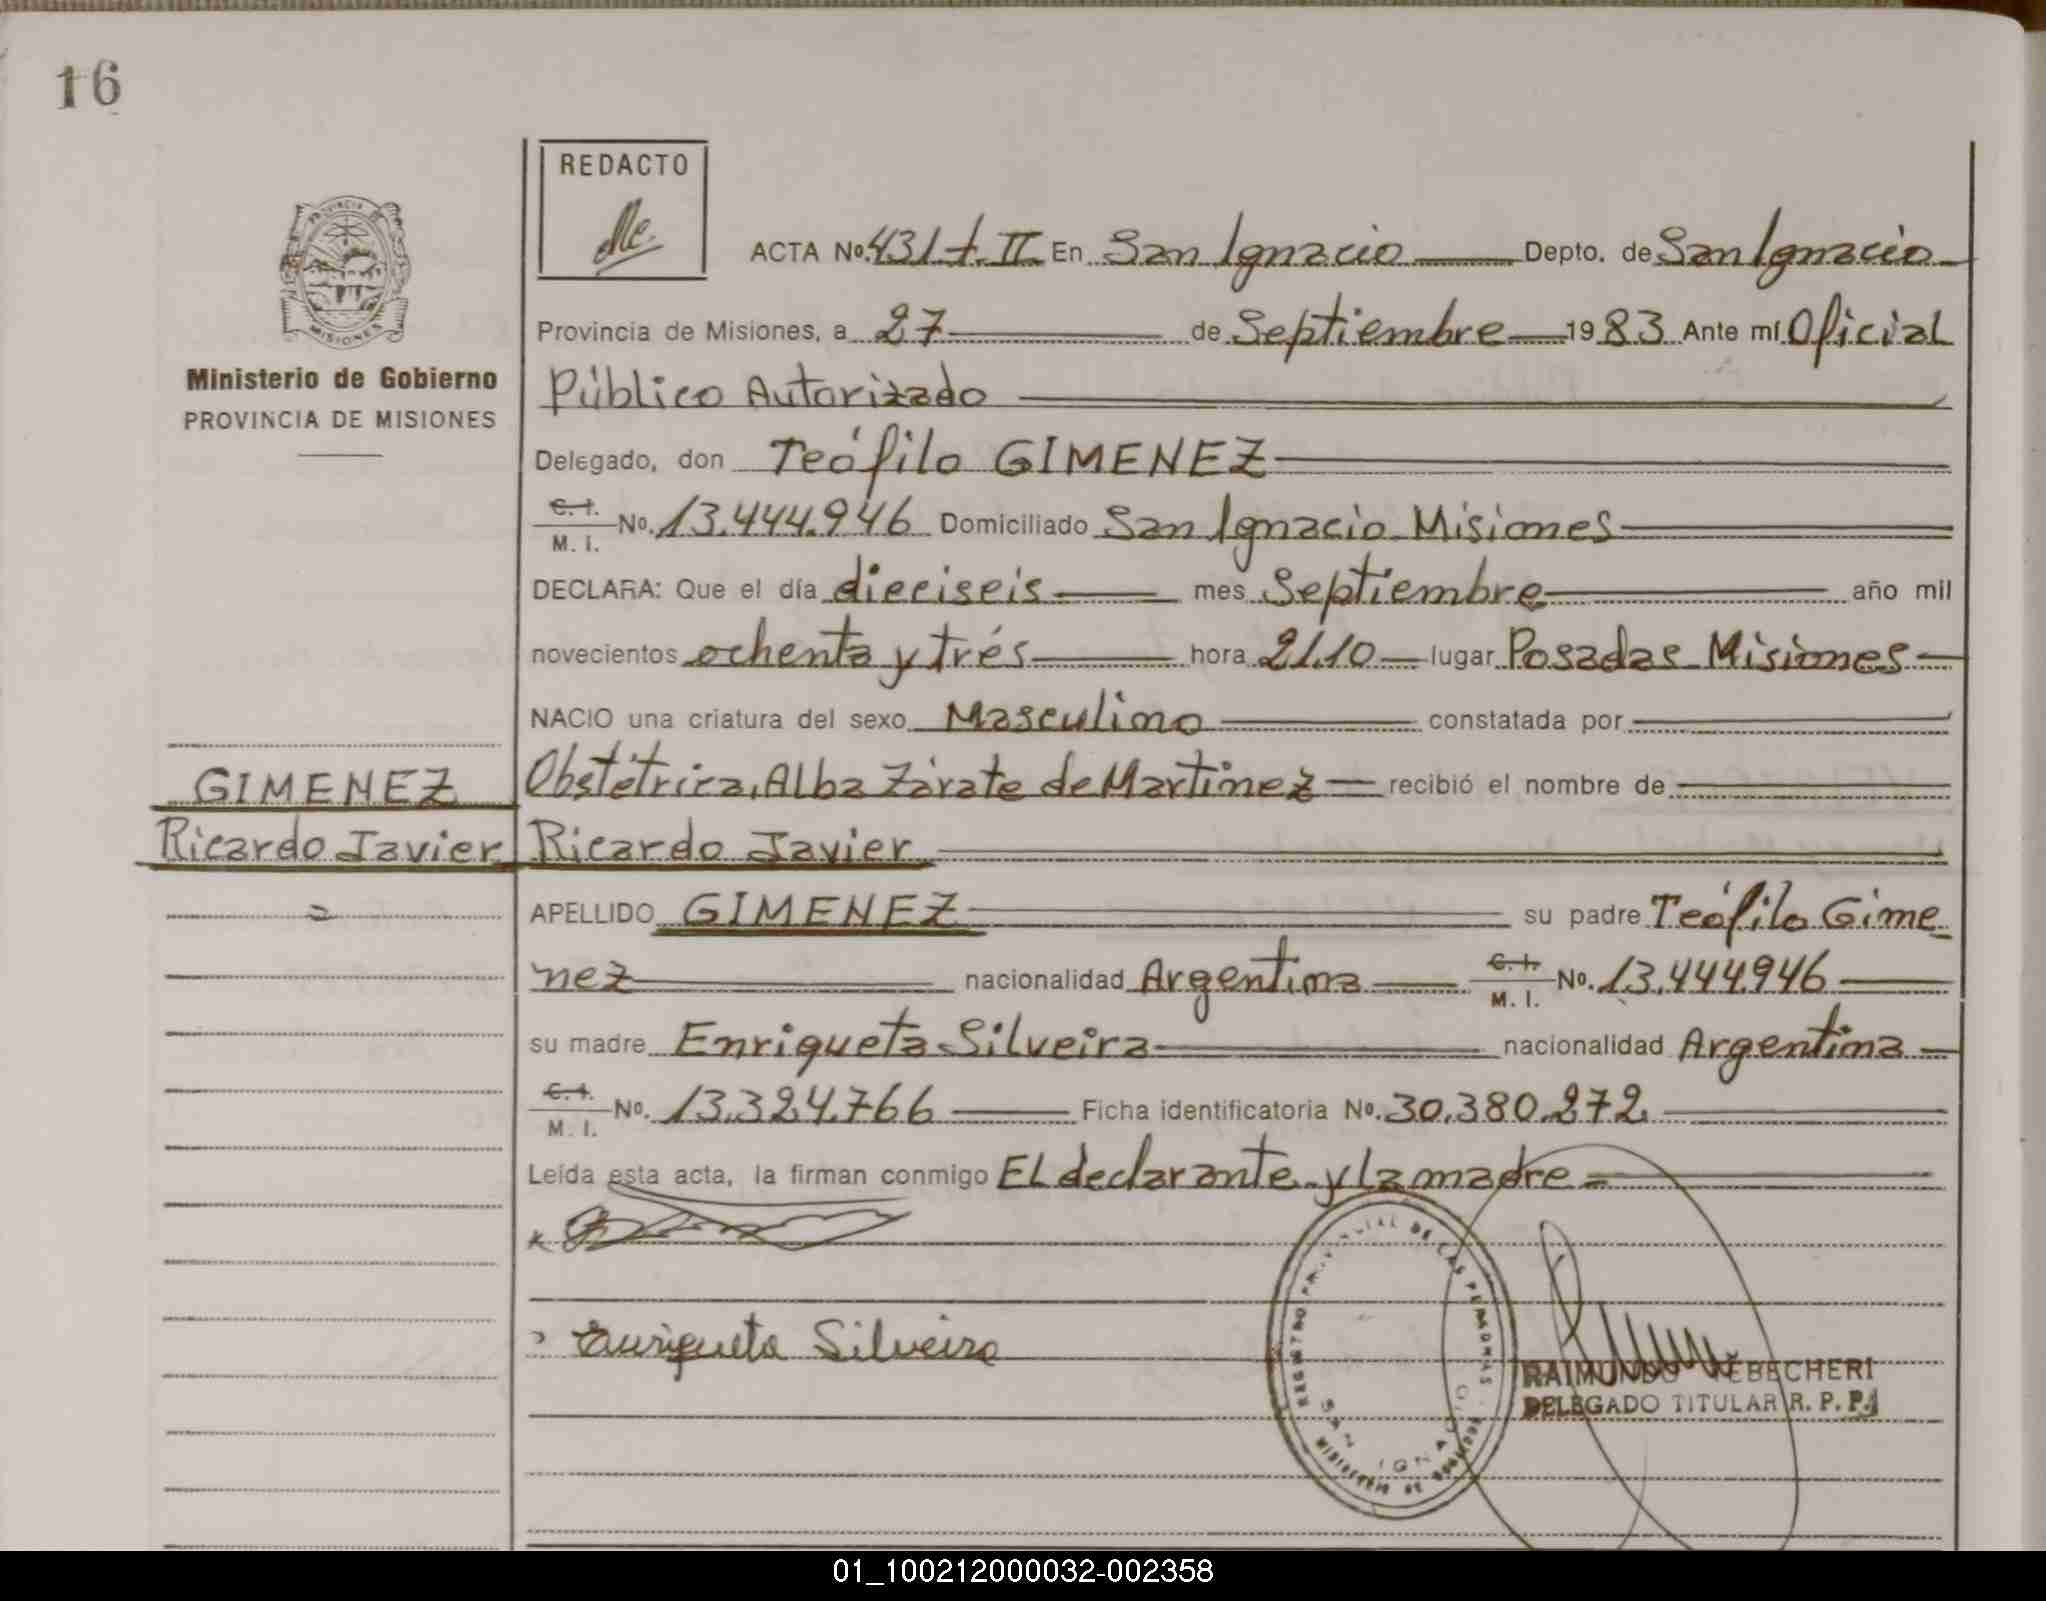 16
REDACTO
ACTA No. 431 t. II En San Ignacio Depto. de San Ignacio
Provincia de Misiones, a 27 de Septiembre 1983 Ante mí Oficial
Ministerio de Gobierno
PROVINCIA DE MISIONES
Público Autorizado
Delegado, don Teófilo GIMENEZ
C. I. M. I. No. 13.444.946 Domiciliado San Ignacio Misiones
DECLARA: Que el día dieciseis mes Septiembre año mil
novecientos ochenta y trés hora 21.10 lugar Posadas Misiones
NACIO una criatura del sexo Masculino constatada por
GIMENEZ
Obstétrica, Alba Zárate de Martinez recibió el nombre de
Ricardo Javier
Ricardo Javier
APELLIDO GIMENEZ su padre Teófilo Gime
nez nacionalidad Argentina C. I. M. I. No. 13.444.946
su madre Enriqueta Silveira nacionalidad Argentina
C. I. M. I. No. 13.324.766 Ficha identificatoria No. 30.380.272
Leída esta acta, la firman conmigo El declarante y la madre
Enriqueta Silveira
REGISTRO PROVINCIAL DE LAS PERSONAS
SAN IGNACIO
MINISTERIO DE GOBIERNO
RAIMUNDO
DELEGADO TITULAR R. P. P.
01_100212000032-002358